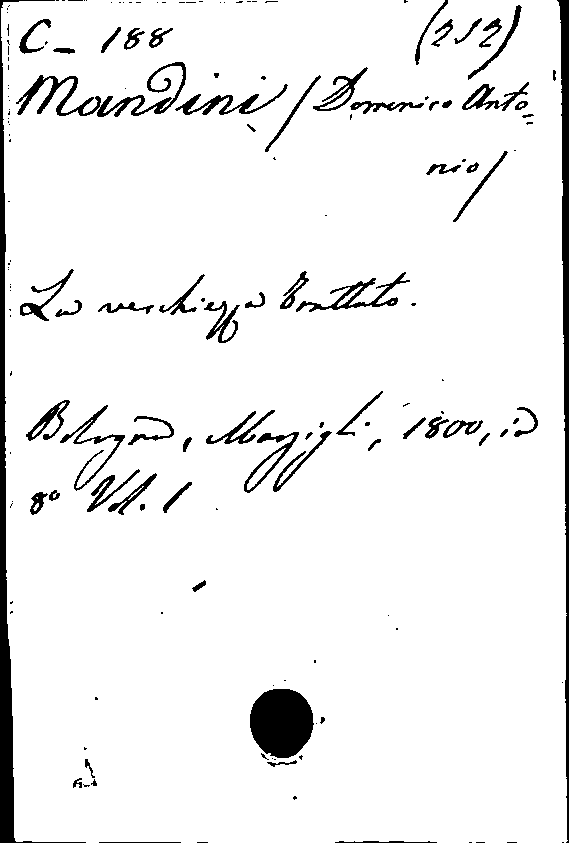 C_ 188 (252)
Mandini / Domenico Anto=
nio /
La vecchiezza Trattato.
Bologna, Marsigli, 1800, in
8° Vol. 1